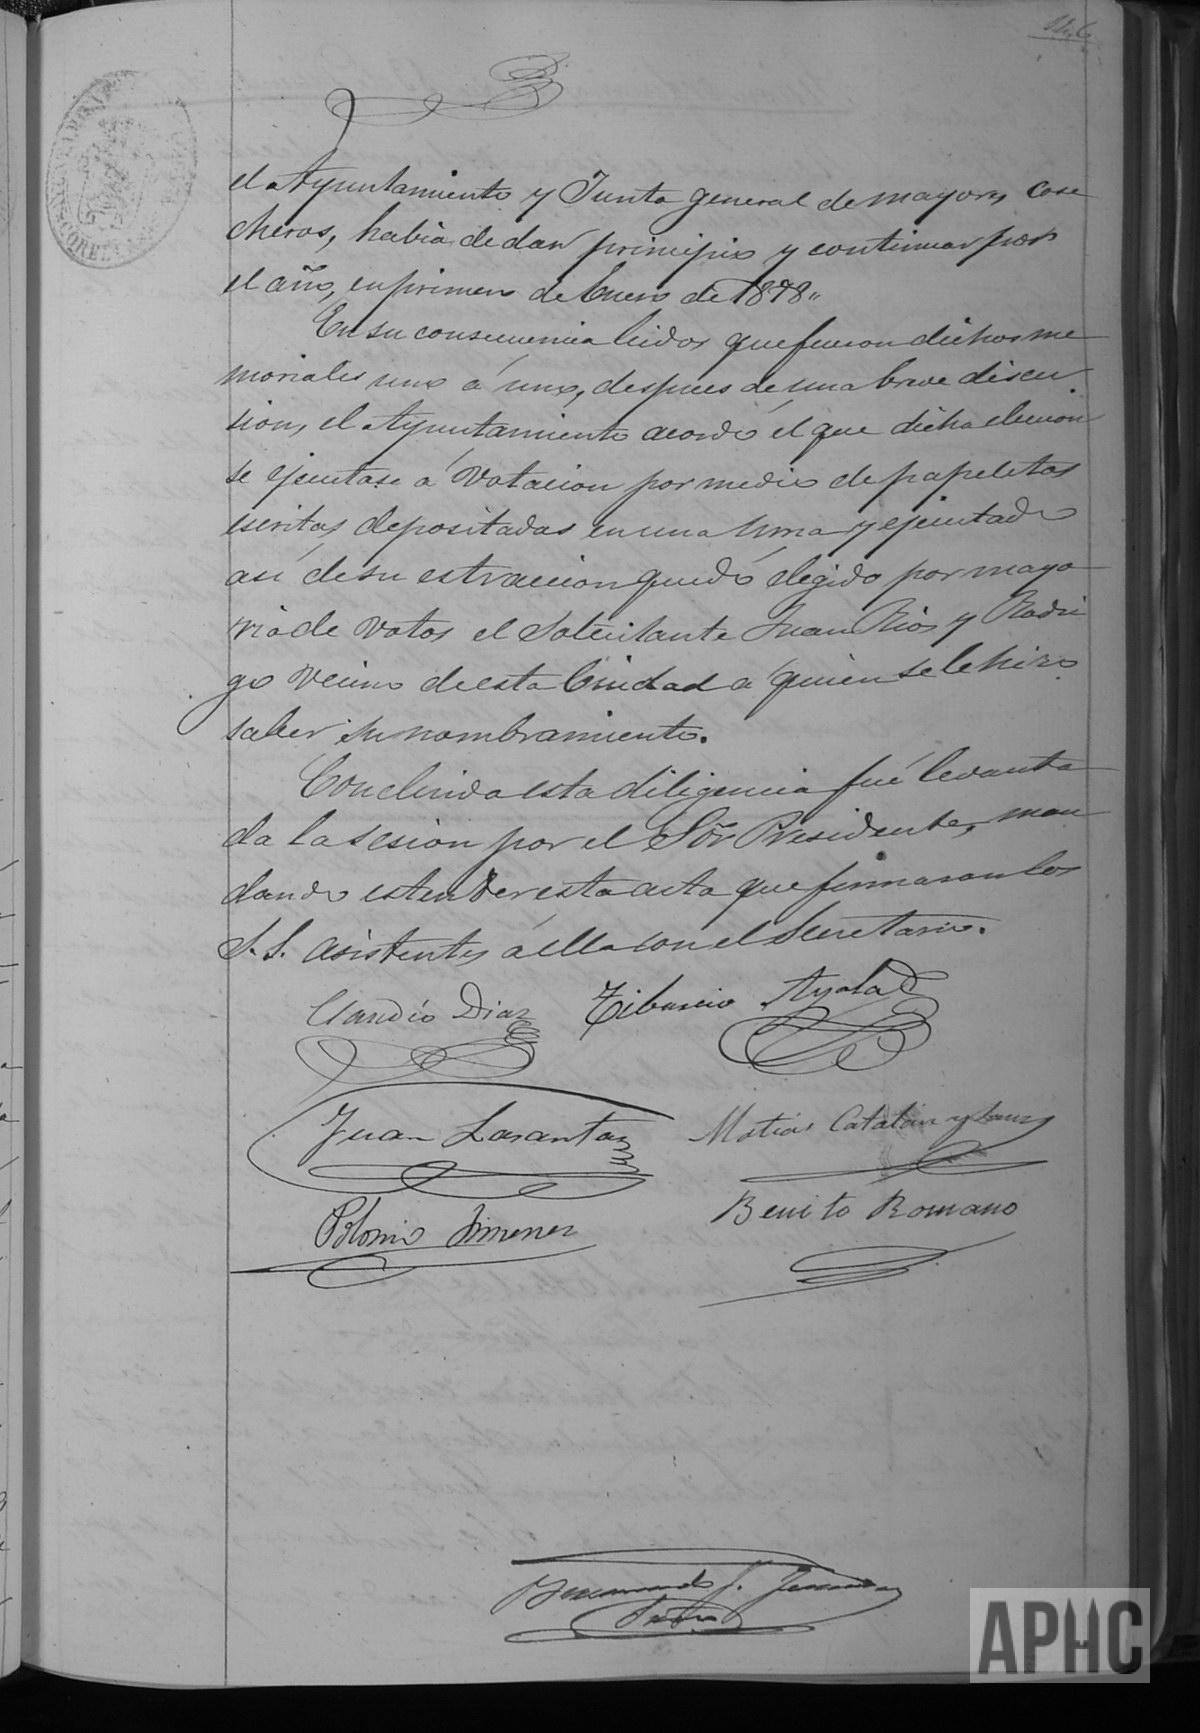 146
el Ayuntamiento y Junta general de mayores cose
cheros, habia de dar principio y continuar por
el año, en primero de Enero de 1878.,
En su consecuencia leidos que fueron dichos me
moriales uno á uno, despues de una breve discu
sion, el Ayuntamiento acordó él que dicha eleccion
se ejecutase á votacion por medio de papeletas
escritas depositadas en una urna y ejecutado
así de su estraccion quedó elegido por mayo
ria de votos el Solicitante Juan Rios y Rodri
go vecino de esta Ciudad á quien se le hizo
saber su nombramiento.
Concluida esta diligencia fué levanta
da la sesion por el Sõr Presidente, man
dando estender esta acta que firmaran los
S.S. asistentes á ella con el Secretario.
Claudio Diaz Tiburcio Ayala
Juan Lasanta Matias Catalán y
Polonio Jimenez Benito Romano
APHC